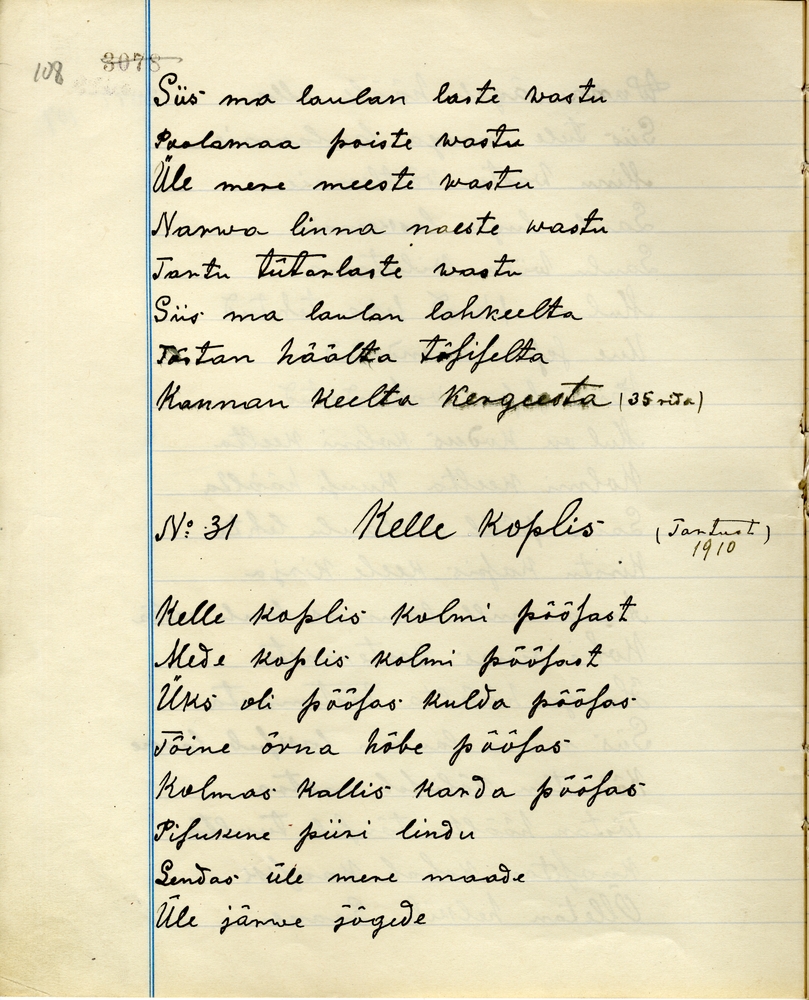 108 3078
Siis ma laulan laste wastu
Poolamaa poiste wastu
Üle mere meeste wastu
Narwa linna naeste wastu
Tartu tütarlaste wastu
Siis ma laulan lahkeelta
Tõstan häälta tõsiselta
Kannan keelta kergeesta (35 rida)
No: 31 Kelle koplis (Tartust)
1910
Kelle koplis kolmi põõsast
Mede koplis kolmi põõsast
Üks oli põõsas kulda põõsas
Tõine õrna hõbe põõsas
Kolmas kallis karda põõsas
Pisukene piiri lindu
Lendas üle mere maade
Üle järwe jõgede